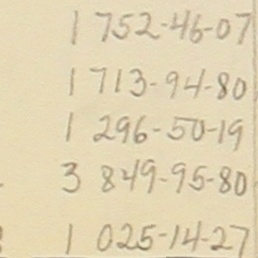 1 752-46-07
1 713-94-80
1 296-50-19
3 849-95-80
1 025-14-27